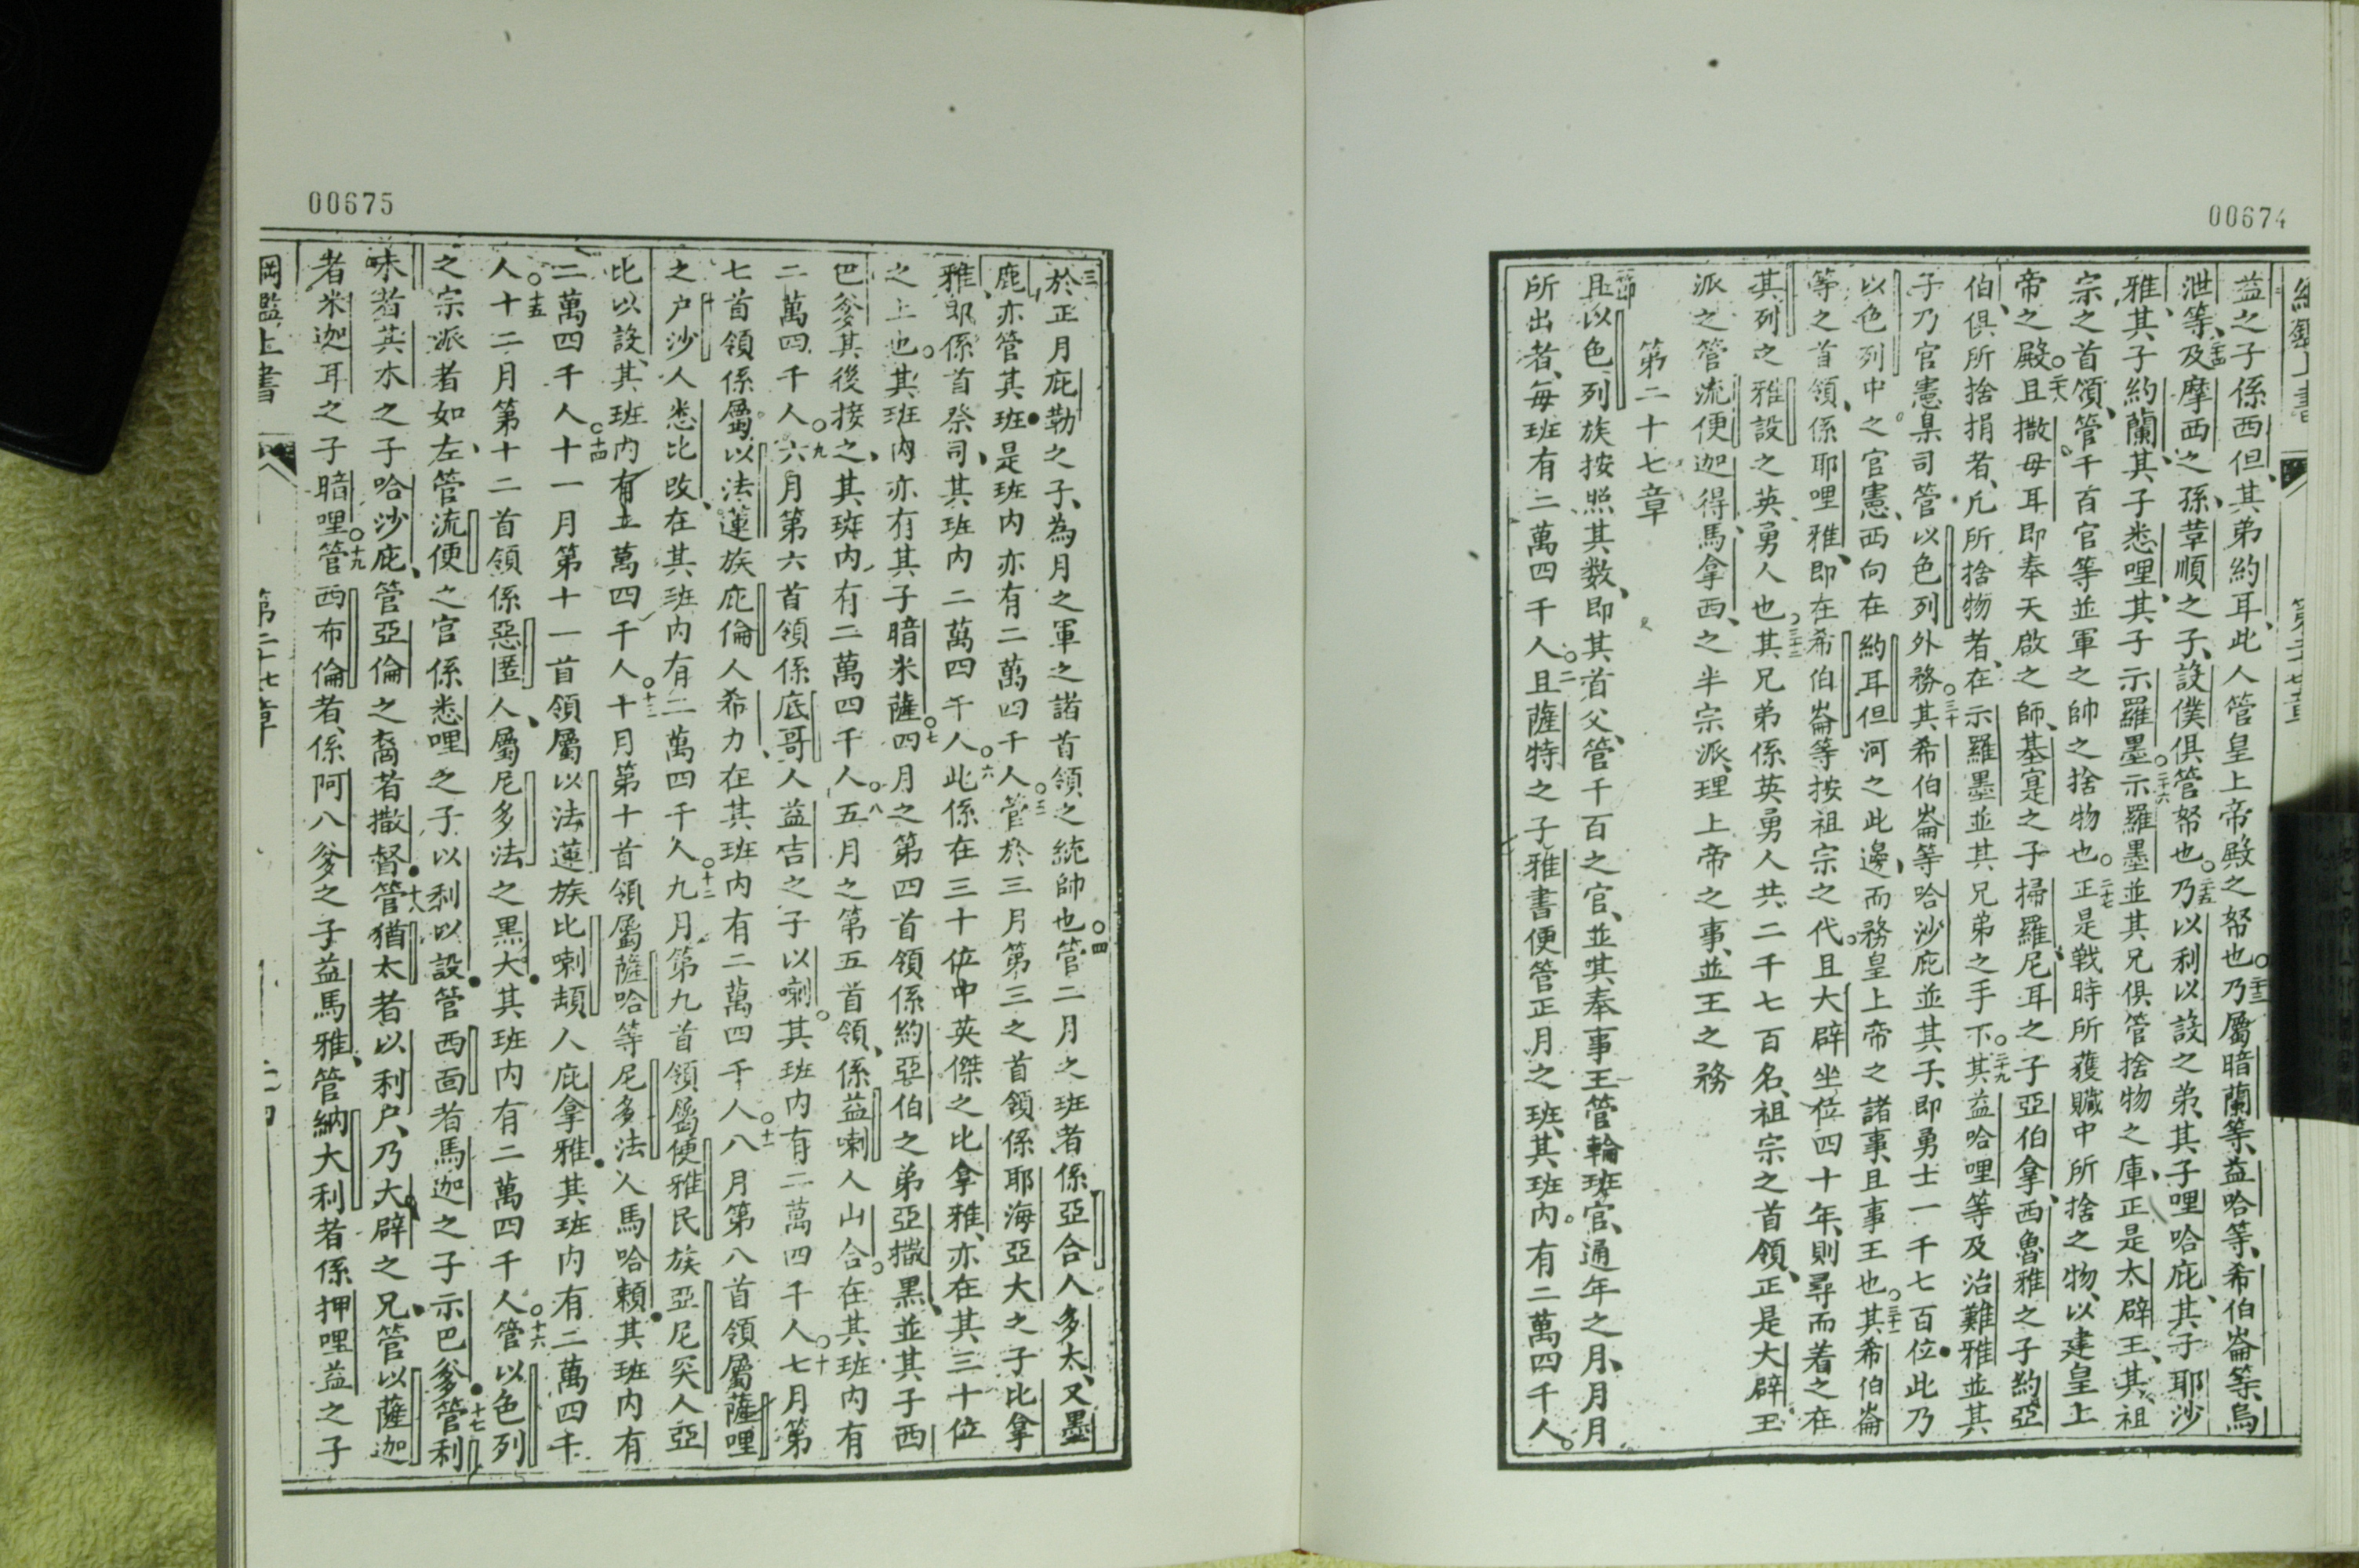 00674
益之子係西但、其弟約耳、此人管皇上帝殿之帑也。乃屬暗蘭等、益哈等、希伯崙等、烏
泄等、及摩西之孫、革順之子、設僕、俱管帑也。乃以利以設之弟、其子哩哈庇、其子耶沙
雅、其子約蘭、其子悉哩、其子示羅墨。示羅墨並其兄俱管捨物之庫、正是大辟王、其祖
宗之首領、管千百官等並軍之帥之捨物也。正是戰時所獲贓中所捨之物、以建皇上
帝之殿。且撒母耳即奉天啟之師、基寔之子掃羅、尼耳之子亞伯拿、西魯雅之子約亞
伯、俱所捨捐者、凡所捨物者、在示羅墨並其兄弟之手下。其益哈哩等及治難雅並其
子乃官憲臬司管以色列外務。其希伯崙等哈沙庇並其子、即勇士一千七百位、此乃
以色列中之官憲、西向在約耳但河之此邊、而務皇上帝之諸事、且事王也。其希伯崙
等之首領、係耶哩雅、即在希伯崙等按祖宗之代。且大辟坐位四十年、則尋而着之在
其列之雅設之英勇人也。其兄弟係英勇人共二千七百名、祖宗之首領、正是大辟王
派之管流便迦得、馬拿西、之半宗派、理上帝之事、並王之務
第二十七章
且以色列族按照其數、即其首父、管千百之官、並其奉事王管輪班官、通年之月、月月
所出者、每班有二萬四千人。且薩特之子雅書便管正月之班、其班內。有二萬四千人。
00675
於正月庇勒之子、為月之軍之諸首領之統帥也。管二月之班者係亞合人多太、又墨
鹿亦管其班、是班内亦有二萬四千人。管於三月第三之首領係耶海亞大之子比拿
雅、即係首祭司、其班内二萬四千人。此係在三十位中英傑之比拿雅、亦在其三十位
之上也。其班内亦有其子暗米薩。四月之第四首領係約亞伯之弟亞撒黑、並其子西
巴爹其後接之、其班内有二萬四千人。五月之第五首領、係益喇人山合。在其班内有
二萬四千人。六月第六首領係底哥人益吉之子以喇。其班内有二萬四千人。七月第
七首領係屬以法蓮族庇倫人希力、在其班内有二萬四千人。八月第八首領屬薩哩
之户沙人悉比改、在其班内有二萬四千人。九月第九首領屬便雅民族亞尼突人亞
比以設、其班内有二萬四千人。十月第十首領屬薩哈等尼多法人馬哈賴、其班内有
二萬四千人。十一月第十一首領屬以法蓮族比喇頡人庇拿雅、其班内有二萬四千
人。十二月第十二首領係惡匿人、屬尼多法之黑大、其班内有二萬四千人。管以色列
之宗派者如左、管流便之官係悉哩之子以利以設、管西面者馬迦之子示巴爹、管利
味者其木之子哈沙庇、管亞倫之裔者撒督、管猶太者以利户、乃大辟之兄、管以薩迦
者米迦耳之子暗哩。管西布倫者、係阿八爹之子益馬雅、管納大利者係押哩益之子
綱鑑上書 第二十七章